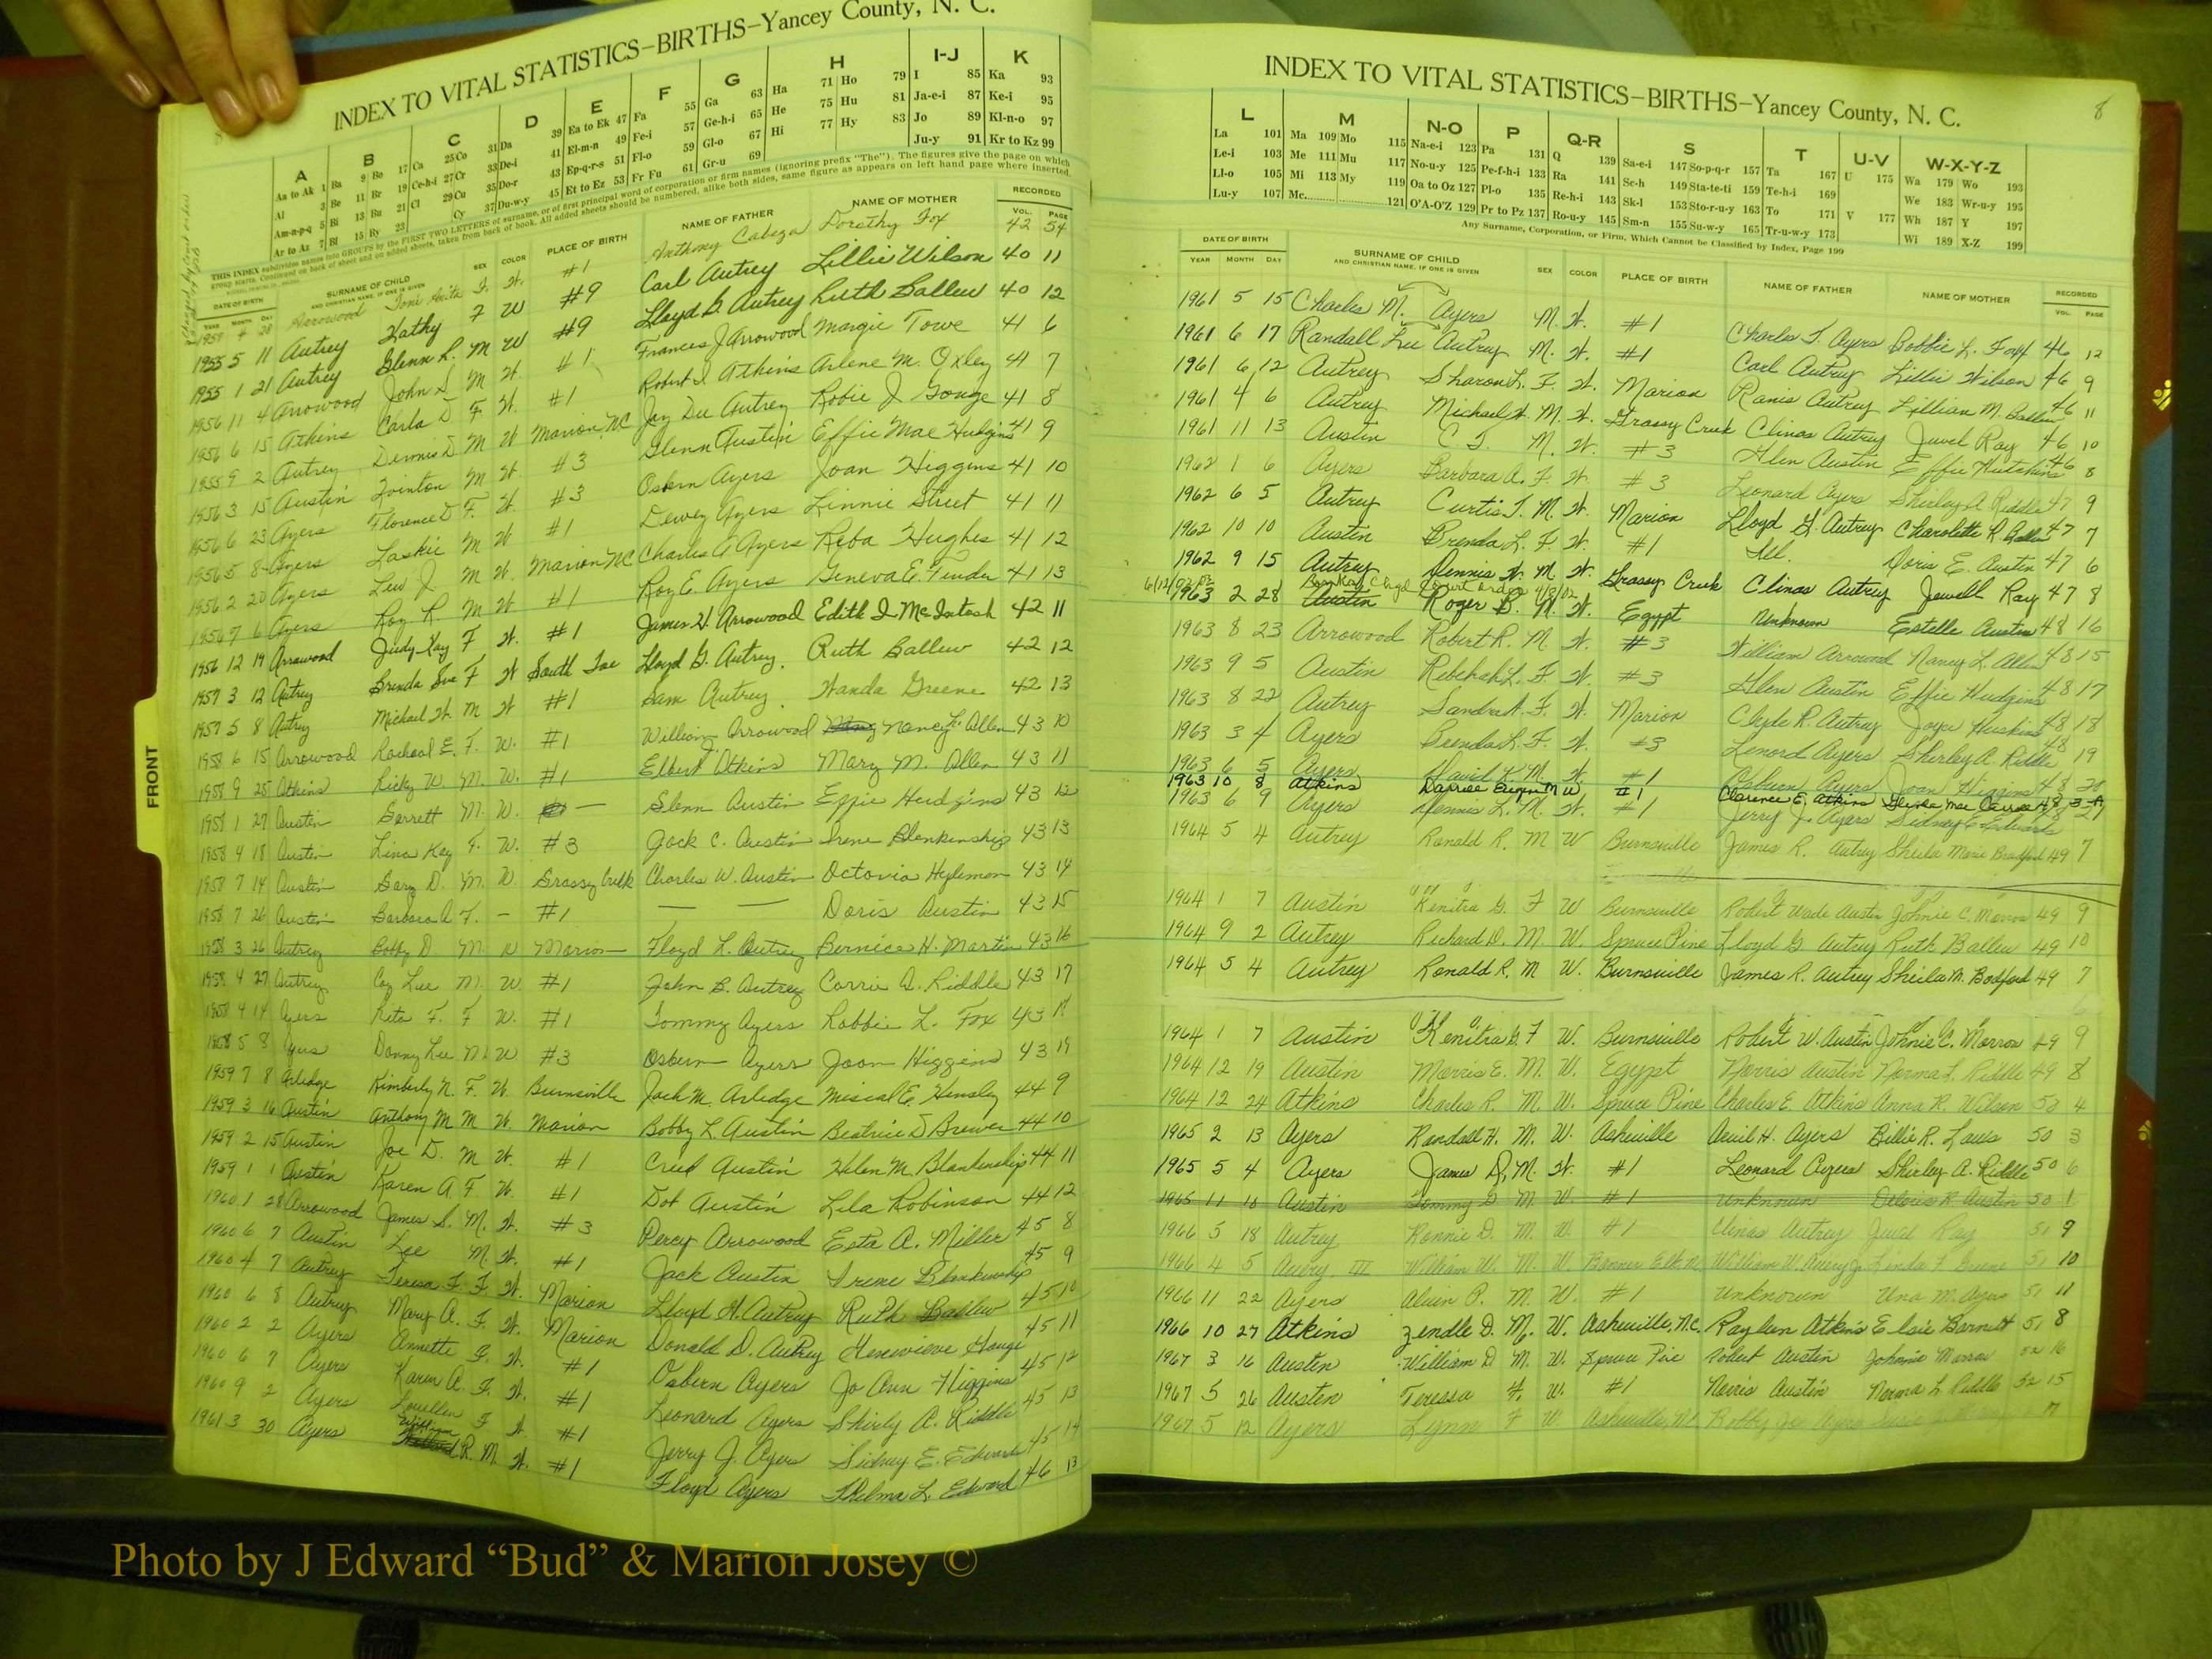 INDEX TO VITAL STATISTICS–BIRTHS–Yancey County, N. C.
A B C D E F G H I-J K
Aa to Ak 1 Ba 9 Bo 17 Ca 25 Co 31 Da 39 Ea to Ek 47 Fa 55 Ga 63 Ha 71 Ho 79 I 85 Ka 93
Al 3 Be 11 Br 19 Ce-h-i 27 Cr 33 De-i 41 El-m-n 49 Fe-i 57 Ge-h-i 65 He 75 Hu 81 Ja-e-i 87 Ke-i 95
Am-a-p-q 5 Bi 13 Bu 21 Cl 29 Cu 35 Do-r 43 Ep-q-r-s 51 Fl-o 59 Gl-o 67 Hi 77 Hy 83 Jo 89 Kl-n-o 97
Ar to Az 7 Bl 15 By 23 Cy 37 Du-w-y 45 Et to Ez 53 Fr Fu 61 Gr-u 69 Ju-y 91 Kr to Kz 99
THIS INDEX subdivides names into GROUPS by the FIRST TWO LETTERS of surname, or of first principal word of corporation or firm names (ignoring prefix "The"). The figures give the page on which
group starts. Continued on back of sheet and on added sheets, taken from back of book. All added sheets should be numbered, alike both sides, same figure as appears on left hand page where inserted.
DATE OF BIRTH SURNAME OF CHILD SEX COLOR PLACE OF BIRTH NAME OF FATHER NAME OF MOTHER RECORDED
YEAR MONTH DAY AND CHRISTIAN NAME, IF ONE IS GIVEN VOL. PAGE
1957 4 28 Arrowood Toni Anita F. W. #1 Anthony Cabega Dorothy Fox 42 54
1955 5 11 Autrey Kathy F W #9 Carl Autrey Lillie Wilson 40 11
1955 1 21 Autrey Glenn R. M W #9 Lloyd G. Autrey Ruth Ballew 40 12
1956 11 4 Arrowood John S M W. #1 Frances J Arrowood Margie Towe 41 6
1956 6 15 Atkins Carla D F W. #1 Robert I Atkins Arlene M. Oxley 41 7
1955 9 2 Autrey Dennis D M W Marion, NC Jay Dee Autrey Robie J Gouge 41 8
1956 3 15 Austin Quinton M W. #3 Glenn Austin Effie Mae Hudgins 41 9
1956 6 23 Ayers Florence D F. W. #3 Osbern Ayers Joan Higgins 41 10
1956 5 8 Ayers Laskie M W #1 Dewey Ayers Linnie Street 41 11
1956 2 20 Ayers Lew J. M W. Marion NC Charles G Ayers Reba Hughes 41 12
1956 7 6 Ayers Roy R. M W #1 Roy E. Ayers Geneva E. Pender 41 13
1956 12 19 Arrowood Judy Kay F W. #1 James H Arrowood Edith I McIntosh 42 11
1957 3 12 Autrey Brenda Sue F W South Toe Lloyd G. Autrey. Ruth Ballew 42 12
1957 5 8 Autrey Michael W. M W #1 Sam Autrey. Wanda Greene 42 13
1958 6 15 Arrowood Racheal E. F. W. #1 William Arrowood Nancy L. Allen 43 10
1958 9 25 Atkins Ricky W. M. W. #1 Elbert J. Atkins Mary M. Allen 43 11
1958 1 27 Austin Garrett M. W. — Glenn Austin Effie Hudgins 43 12
1958 4 18 Austin Lina Kay F. W. #3 Jack C. Austin Irene Blankenship 43 13
1958 7 14 Austin Gary D. M. W. Grassy Creek Charles W. Austin Octavia Hylemon 43 14
1958 7 26 Austin Barbara A F. – #1 — — Doris Austin 43 15
1958 3 26 Autrey Bobby D. M. W Marion Floyd L. Autrey Bernice H. Martin 43 16
1958 4 27 Autrey Coy Lee M. W. #1 John B. Autrey Carrie A. Riddle 43 17
1958 4 14 Ayers Rita F. F W. #1 Tommy Ayers Bobbie L. Fox 43 18
1958 5 8 Ayers Danny Lee M. W #3 Osburn Ayers Joan Higgins 43 19
1959 7 8 Arledge Kimberly N. F. W. Burnsville Jack M. Arledge E. Hensley 44 9
1959 3 16 Austin Anthony M M W. Marion Bobby L Austin Beatrice D Brewer 44 10
1959 2 15 Austin Joe D. M W. #1 Creed Austin Helen M. Blankenship 44 11
1959 1 1 Austin Karen A F. W. #1 Dot Austin Lila Robinson 44 12
1960 1 28 Arrowood James S. M. W. #3 Percy Arrowood Esta A. Miller 45 8
1960 6 7 Austin Lee M. W. #1 Jack Austin Irene Blankenship 45 9
1960 4 7 Autrey Teresa F. F. W. Marion Lloyd G. Autrey Ruth Ballew 45 10
1960 6 8 Autrey Mary A. F. W. Marion Donald D. Autrey Henevieve Gouge 45 11
1960 2 2 Ayers Annette F. W. #1 Osbern Ayers Jo Ann Higgins 45 12
1960 6 7 Ayers Karen A. F. W. #1 Leonard Ayers Shirly A. Riddle 45 13
1960 9 2 Ayers Louellen F W. #1 Jerry J. Ayers Sidney E. Edwards 45 14
1961 3 30 Ayers William R. M. W. #1 Floyd Ayers Thelma L. Edward 46 13
FRONT
INDEX TO VITAL STATISTICS–BIRTHS–Yancey County, N. C. 8
L M N-O P Q-R S T U-V W-X-Y-Z
La 101 Ma 109 Mo 115 Na-e-i 123 Pa 131 Q 139 Sa-e-i 147 So-p-q-r 157 Ta 167 U 175 Wa 179 Wo 193
Le-i 103 Me 111 Mu 117 No-u-y 125 Pe-f-h-i 133 Ra 141 Sc-h 149 Sta-te-ti 159 Te-h-i 169 We 183 Wr-u-y 195
Ll-o 105 Mi 113 My 119 Oa to Oz 127 Pl-o 135 Re-h-i 143 Sk-l 153 Sto-r-u-y 163 To 171 V 177 Wh 187 Y 197
Lu-y 107 Mc 121 O'A-O'Z 129 Pr to Pz 137 Ro-u-y 145 Sm-n 155 Su-w-y 165 Tr-u-w-y 173 Wi 189 X-Z 199
Any Surname, Corporation, or Firm, Which Cannot be Classified by Index, Page 199
DATE OF BIRTH SURNAME OF CHILD SEX COLOR PLACE OF BIRTH NAME OF FATHER NAME OF MOTHER RECORDED
YEAR MONTH DAY AND CHRISTIAN NAME, IF ONE IS GIVEN VOL. PAGE
1961 5 15 Charles M. Ayers M. W. #1 Charles T. Ayers Bobbie L. Fox 46 12
1961 6 17 Randall Lee Autrey M. W. #1 Carl Autrey Lillie Wilson 46 9
1961 6 12 Autrey Sharon L. F. W. Marion Ranis Autrey Lillian M. Ballew 46 11
1961 4 6 Autrey Michael W. M. W. Grassy Creek Clinas Autrey Juvel Ray 46 10
1961 11 13 Austin C. J. M. W. #3 Glen Austin Effie Hutchins 46 8
1962 1 6 Ayers Barbara A. F. W. #3 Leonard Ayers Shirley A. Riddle 47 9
1962 6 5 Autrey Curtis J. M. W. Marion Lloyd G. Autrey Charolette R. Ballew 47 7
1962 10 10 Austin Brenda L. F. W. #1 Ill. Doris E. Austin 47 6
1962 9 15 Autrey Dennis W. M. W. Grassy Creek Clinas Autrey Jewell Ray 47 8
1963 2 28 Austin Roger B. M. W. Egypt Unknown Estelle Austin 48 16
1963 8 23 Arrowood Robert R. M. W. #3 William Arrowood Nancy L. Allen 48 15
1963 9 5 Austin Rebekah L. F. W. #3 Glen Austin Effie Hudgins 48 17
1963 8 22 Autrey Sandra A. F. W. Marion Clyde R. Autrey Joyce Huskins 48 18
1963 3 4 Ayers Brenda L. F. W. #3 Lenord Ayers Shirley A. Riddle 48 19
1963 6 5 Ayers David K. M. W. #1 Osburn Ayers Joan Higgins 48 20
1963 10 8 Atkins Darrell Eugene M W #1 Clarence E. Atkins Glenda Mae 48
1963 6 9 Ayers Dennis L. M. W. #1 Jerry J. Ayers Sidney E. Edwards 48 21
1964 5 4 Autrey Ronald R. M W Burnsville James R. Autrey Sheila Marie Bradford 49 7
1964 1 7 Austin Kenitra G. F W Burnsville Robert Wade Austin Johnie C. Morrow 49 9
1964 9 2 Autrey Richard D. M. W. Spruce Pine Lloyd G Autrey Ruth Ballew 49 10
1964 5 4 Autrey Ronald R. M W. Burnsville James R. Autrey Sheila M. Bodford 49 7
1964 1 7 Austin Kenitra G. F W. Burnsville Robert W. Austin Johnie C. Morrow 49 9
1964 12 19 Austin Morris E. M. W. Egypt Norris Austin Norma L. Riddle 49 8
1964 12 24 Atkins Charles R. M. W. Spruce Pine Charles E. Atkins Anna R. Wilson 50 4
1965 2 13 Ayers Randall H. M. W. Asheville Avril H. Ayers Billie R. Laws 50 3
1965 5 4 Ayers James D, M. W. #1 Leonard Ayers Shirley A. Riddle 50 6
1965 11 10 Austin Tommy G M. W. #1 Unknown Deloris R Austin 50 1
1966 5 18 Autrey Ronnie D. M. W. #1 Clinas Autrey Juvel Ray 51 9
1966 4 5 Avery, III William W. M. W. Banner Elk N. William W. Avery Jr. Linda F. Greene 51 10
1966 11 22 Ayers Alvin P. M. W. #1 Unknown Una M. Ayers 51 11
1966 10 27 Atkins Zendle D. M. W. Asheville, N.C. Raylen Atkins Elsie Barnett 51 8
1967 3 16 Austin William D M. W. Spruce Pine Robert Austin Johnnie Morrow 52 16
1967 5 26 Austen Teressa F. W. #1 Norris Austin Norma L Riddle 52 15
1967 5 12 Ayers Lynn F W Asheville, N.C. Bobby Joe Ayers 17
Photo by J Edward “Bud” & Marion Josey ©